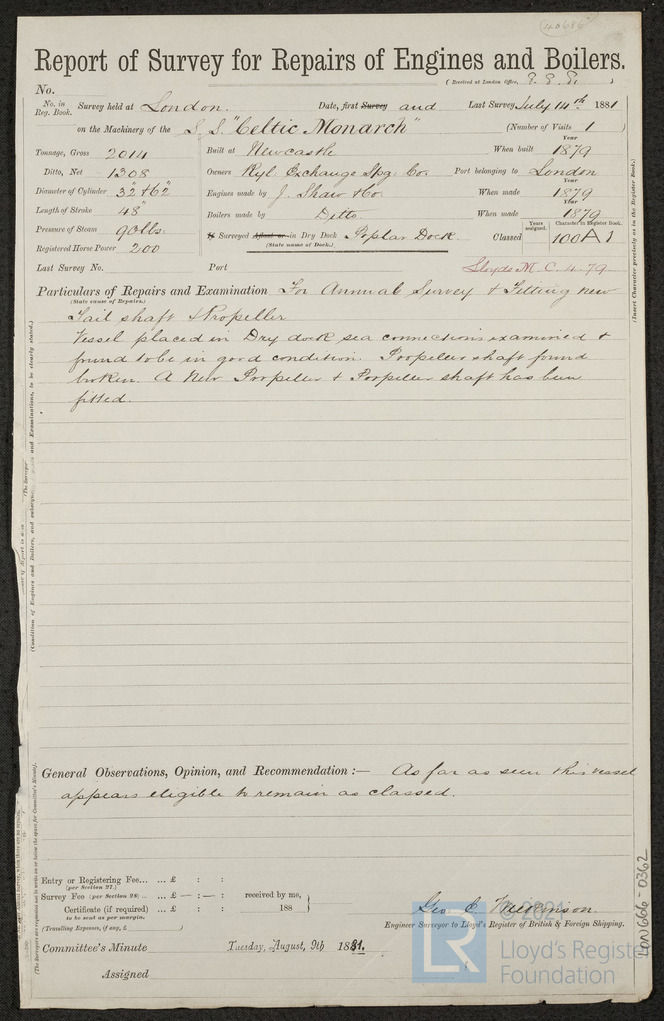 40686
Report of Survey for Repairs of Engines and Boilers.
(Received at London Office, )
No.
No. in Reg. Book. Survey held at London. Date, first Survey and Last Survey July 14th 1881
on the Machinery of the S.S. "Celtic Monarch" (Number of Visits 1 )
Tonnage, Gross 2014 Built at Newcastle When built Year 1879
Ditto, Net 1308 Owners Ryl Exchange Spg Co. Port belonging to London
Diameter of Cylinder 32" & 62" Engines made by J. Shaw & Co. When made Year 1879
Length of Stroke 48" Boilers made by Ditto When made Year 1879
Pressure of Steam 90 lbs. If Surveyed Afloat or in Dry Dock Poplar Dock. Classed Years assigned. Character in Register Book. 100 A 1
(State name of Dock.)
Registered Horse Power 200
Last Survey No. Port Lloyds M. C. 4-79
Particulars of Repairs and Examination For Annual Survey & Fitting new
(State cause of Repairs.)
Tail shaft & Propeller
Vessel placed in Dry dock sea connections examined &
found to be in good condition. Propeller shaft found
broken. A New Propeller & Propeller shaft has been
fitted.
(Insert Character precisely as in the Register Book.)
General Observations, Opinion, and Recommendation:— As far as seen this vessel
appears eligible to remain as classed.
Entry or Registering Fee... ... £ : :
(per Section 27.)
Survey Fee (per Section 28) .. ... £ — : — : received by me,
Certificate (if required) ... £ : : 188
to be sent as per margin.
(Travelling Expenses, if any, £ )
Geo. C. Wilkinson.
Engineer Surveyor to Lloyd's Register of British & Foreign Shipping.
Committee's Minute Tuesday, August, 9th 1881.
Assigned
LON666-0362
© 2021
LR
Lloyd's Register
Foundation